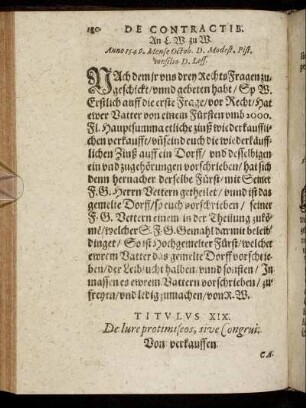 180. DE CONTRACTIB.
An L. W. zu W.
Anno 1546. Mense Octob. D. Modest. Pist.
consilio D. Loss.
NAch dem jr vns drey Rechts Fragen zu-
geschickt / vnnd gebeten habt / Sp W.
Erstlich auff die erste Frage / vor Recht / Hat
ewer Vatter von einem Fürsten vmb 2000.
Fl. Hauptsumma etliche zinß wiederkauffli-
chen verkaufft / vnd sein euch die wiederkäuff-
lichen Zinß auff ein Dorff / vnd desselbigen
ein vnd zugehörungen vorschrieben / hat sich
denn hernacher derselbe Fürst / mit Seiner
F. G. Herrn Vettern getheilet / vnnd ist das
gemelte Dorff / so euch vorschrieben / seiner
F. G. Vettern einem in der Theilung zukõ-
mẽ / welcher S. F. G. Gemahl darmit beleib-
dinget / So ist Hochgemelter Fürst / welcher
ewrem Vatter das gemelte Dorff vorschrie-
ben / der Leib / ucht halben / vnnd sonsten / In
massen es ewrem Vattern vorschrieben / zu-
freyen / vnd ledig zumachen / von R. W.
TITVLVS XIX.
De Iure protimiseos, sive Congrui.
Von verkauffen